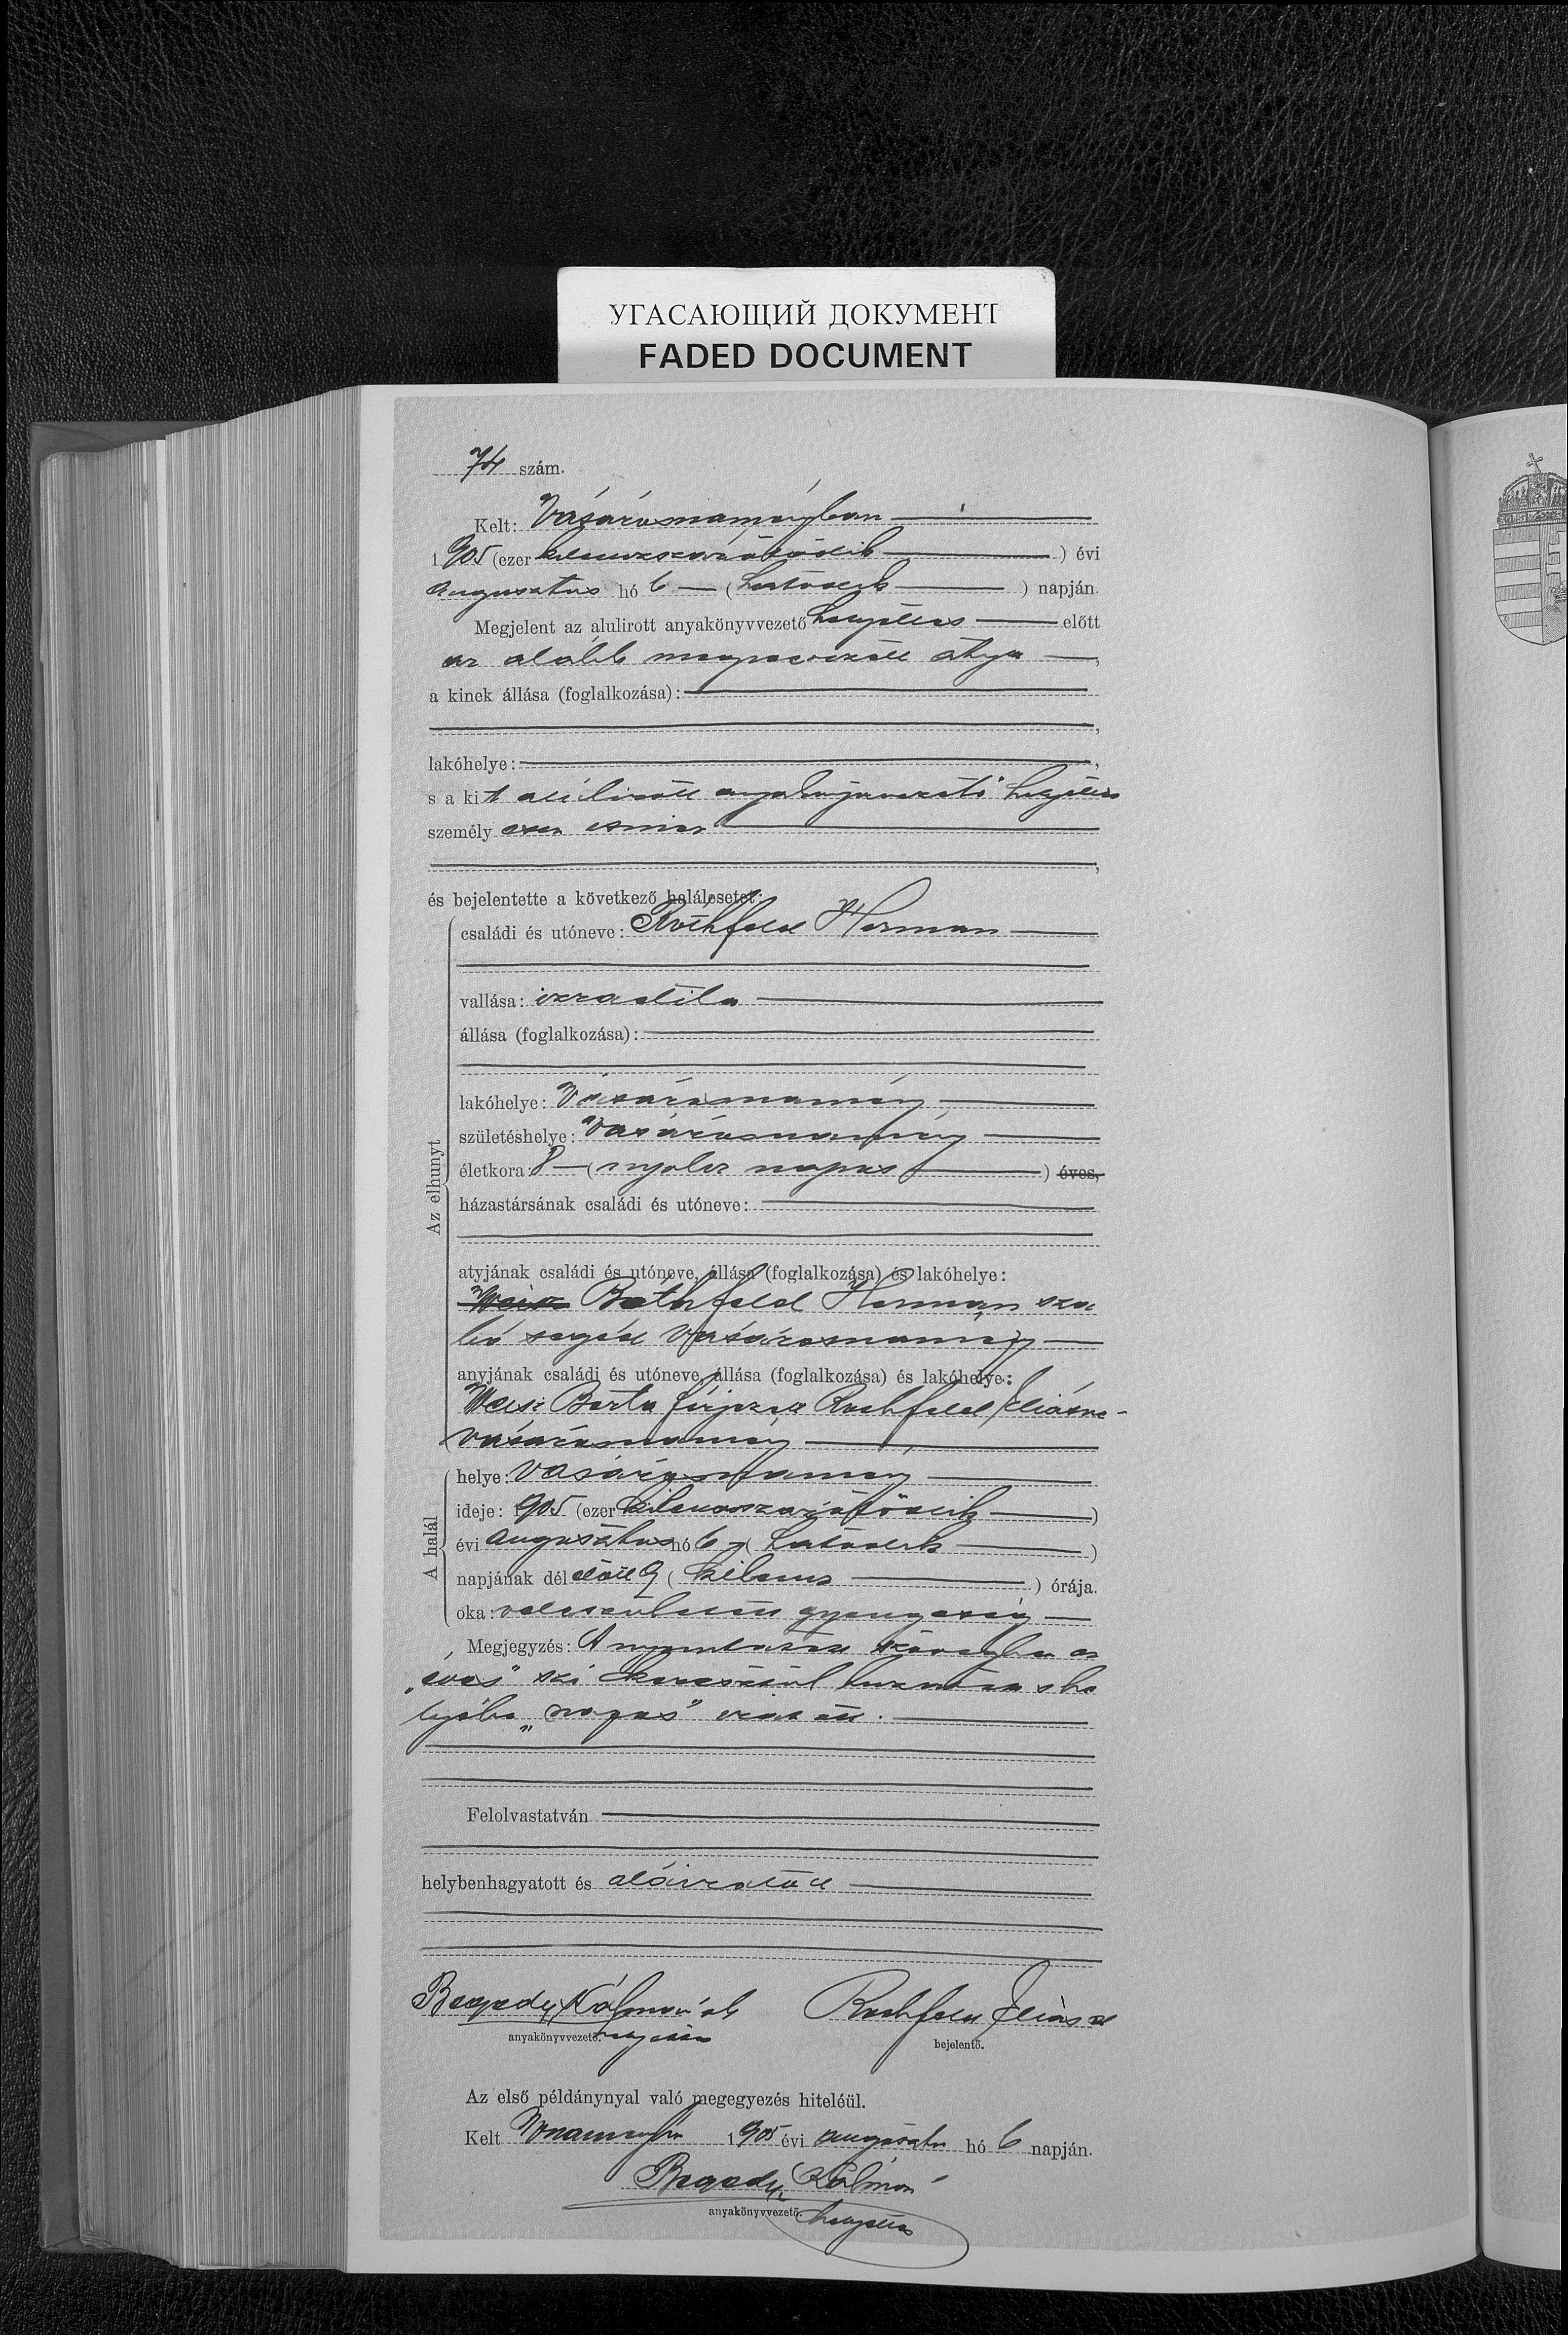 УГАСАЮЩИЙ ДОКУМЕНТ
FADED DOCUMENT
74 szám.
Kelt: Vásárosnaményban
1905 (ezer kilenczszázötödik ) évi
augusztus hó 6 — (hatodik ) napján.
Megjelent az alulirott anyakönyvvezető helyettes előtt
az alább megnevezett atya,
a kinek állása (foglalkozása):
lakóhelye:
s a kit alulirott anyakönyvvezető helyettes
személyesen ismer
és bejelentette a következő halálesetet:
Az elhunyt
családi és utóneve: Rothfeld Herman
vallása: izraelita
állása (foglalkozása):
lakóhelye: Vásárosnamény
születéshelye: Vásárosnamény
életkora: 8 — (nyolcz napos ) éves,
házastársának családi és utóneve:
atyjának családi és utóneve, állása (foglalkozása) és lakóhelye:
Weisz Rothfeld Herman sza
bó segéd Vásárosnamény
anyjának családi és utóneve, állása (foglalkozása) és lakóhelye:
Weisz Berta férjezett Rothfeld Eliásné
vásárosnamény
A halál
helye: Vásárosnamény
ideje: 1905 (ezer kilenczszázötödik )
évi augusztus hó 6 (hatodik )
napjának délelőtt 9 (kilencz ) órája.
oka: veleszületett gyengeség
Megjegyzés: A nyomtatott szövegben az
„éves" szó keresztül huzatott s he
lyébe „napos" iratott.
Felolvastatván
helybenhagyatott és aláiratott
Kálmán
anyakönyvvezető. helyettes
Rothfeld Eliás
bejelentő.
Az első példánynyal való megegyezés hiteléül.
Kelt Vnaményban 1905 évi augusztus hó 6 napján.
Kálmán
anyakönyvvezető. helyettes